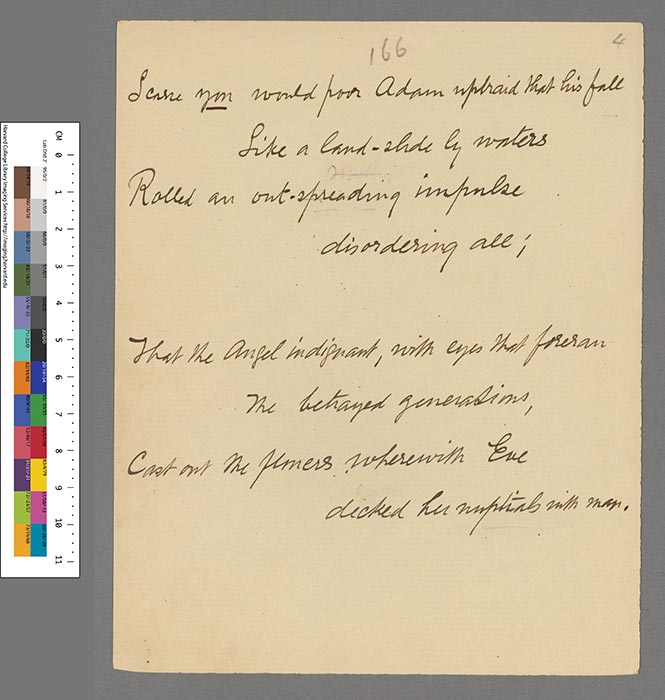 166
4
Scarce you would poor Adam upbraid that his fall
Like a land-slide by waters
Rolled an out-spreading impulse
disordering all;
That the Angel indignant, with eyes that foreran
The betrayed generations,
Cast out the flowers wherewith Eve
decked her nuptials with man.
CM 0 1 2 3 4 5 6 7 8 9 10 11
Harvard College Library Imaging Services http://imaging.harvard.edu